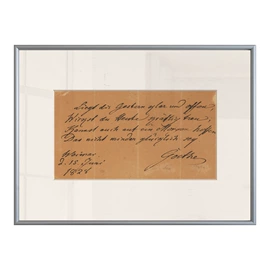 Liegt dir Gestern klar und offen,
Wirkst du Heute kräftig
Kannst auch auf ein Morgen hoffen
Das nicht minder glücklich sey
Weimar
15 Juni
Goethe